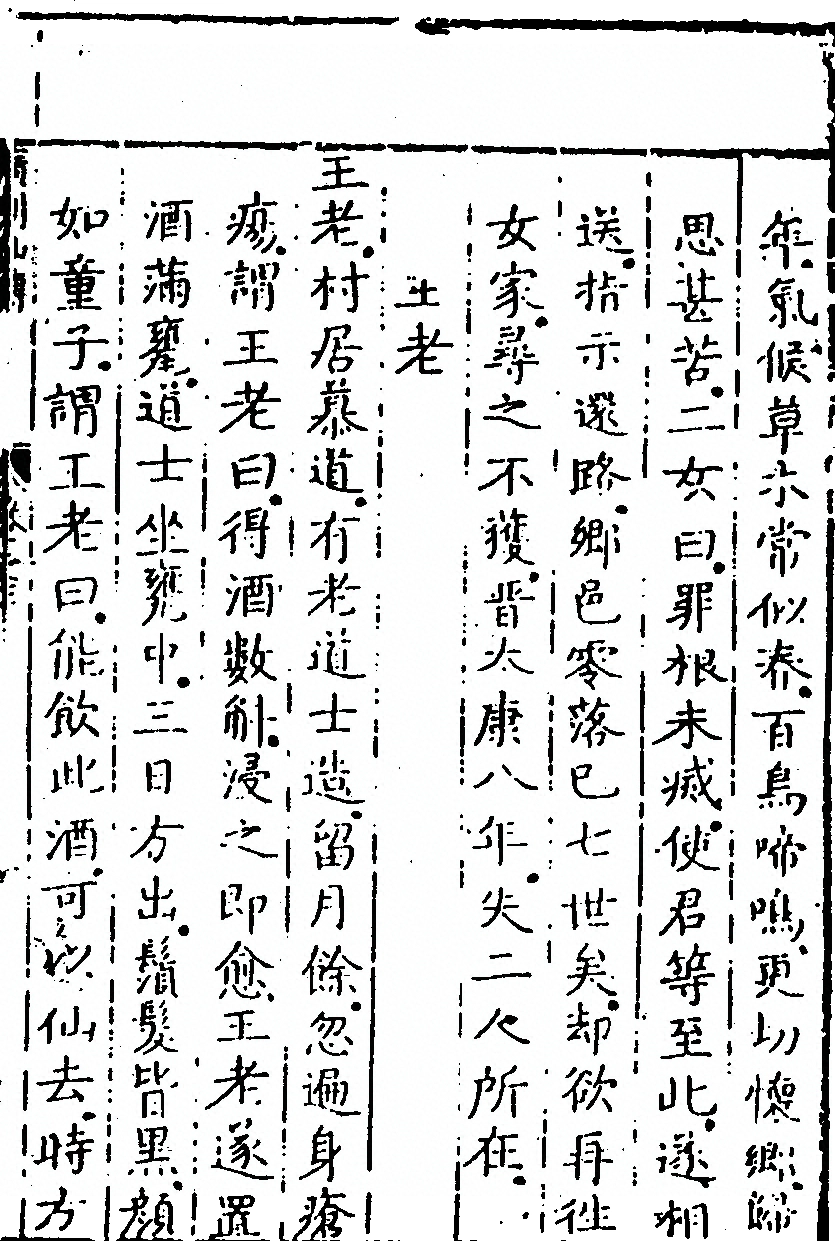 年氣候草木常似春百鳥啼鳴更切懷鄉歸
思甚苦二女曰罪根未滅使君等至此遂相
送指示還路鄉邑零落已七世矣却欲再往
女家尋之不獲晋太康八年失二人所在
王老
王老村居慕道有老道士造留月餘忽遍身瘡
瘍謂王老曰得酒數斛浸之即愈王老遂置
酒滿甕道士坐甕中三日方出鬚髮皆黑顏
如童子謂王老曰能飲此酒可以仙去時方